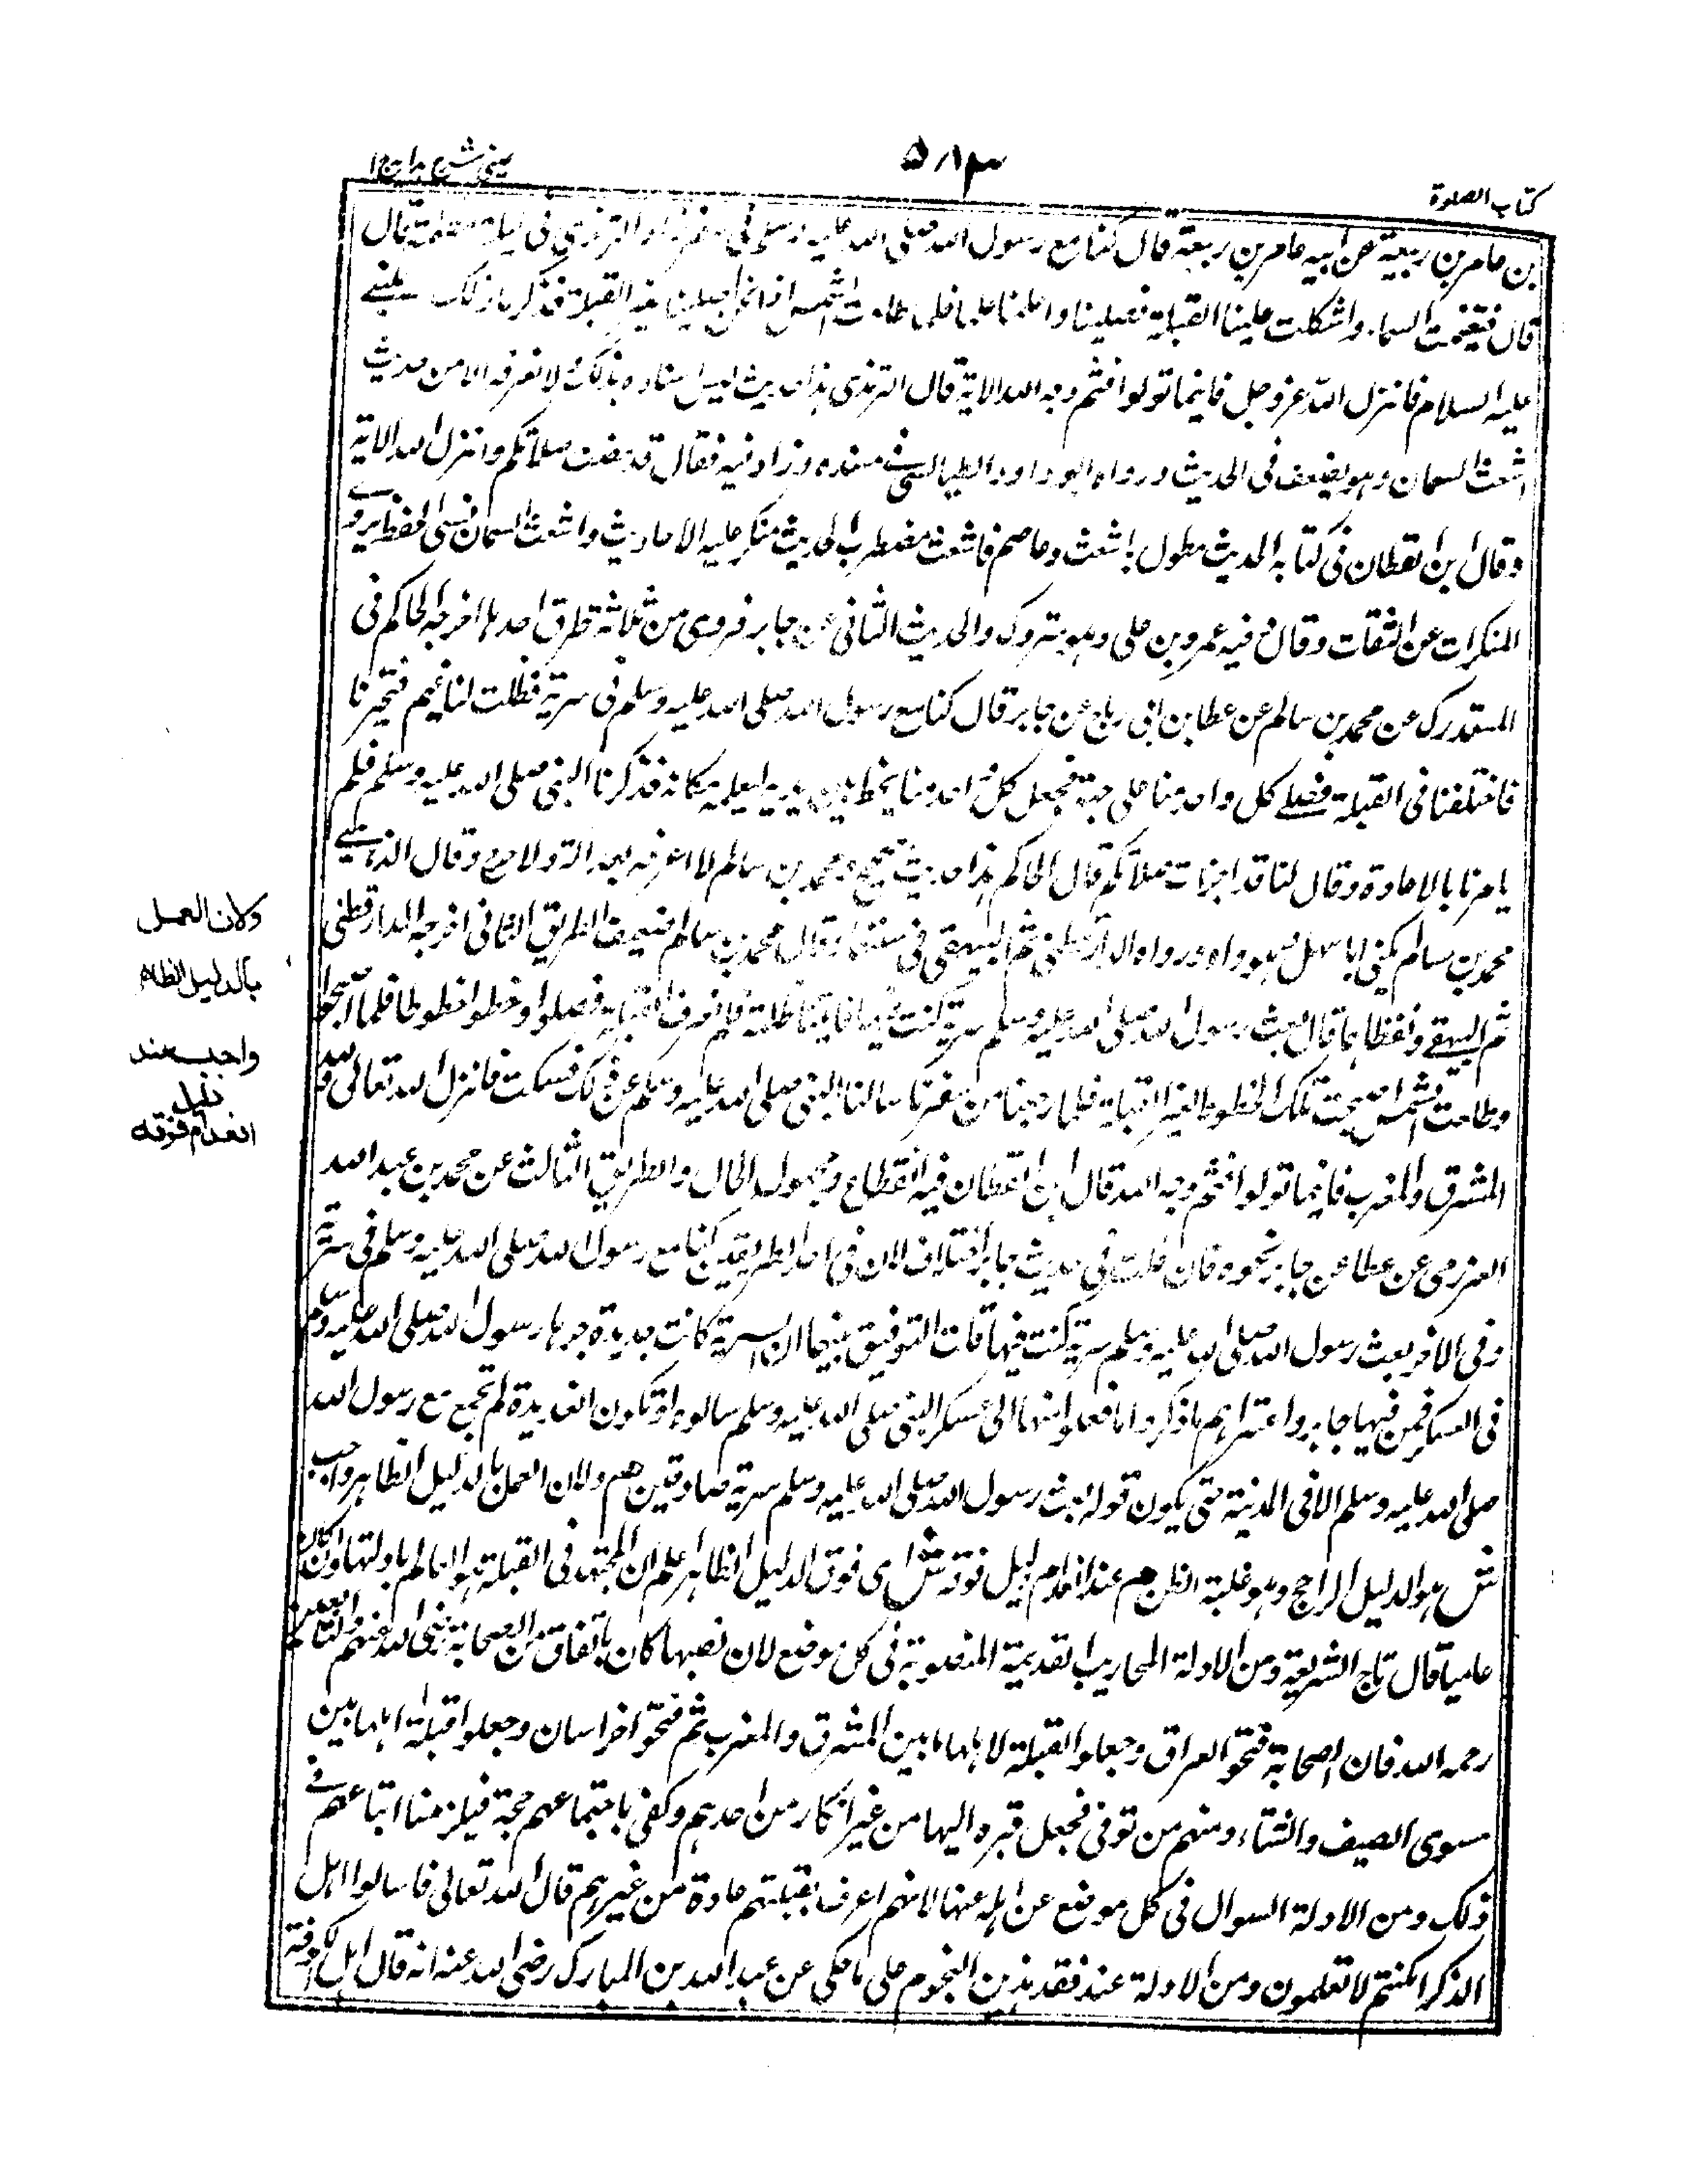 كتاب الصلوة
٥١٣
عینی شرح ہدایہ ج١
بن عامر بن ربيعة عن ابيه عامر بن ربيعة قال كنا مع رسول الله صلى الله عليه وسلم في سفر زاد الترمذي في ليلة مظلمة قال
قال فتغيمت السماء واشكلت علينا القبلة فصلينا واعلمنا علما فلما طلعت الشمس اذا نحن صلينا بغير القبلة فذكرنا ذلك للنبي
عليه السلام فانزل الله عز وجل فاينما تولوا فثم وجه الله الاية قال الترمذي هذا حديث ليس اسناده بذلك لا نعرفه الا من حديث
اشعث السمان وهو يضعف في الحديث ورواه ابو داود الطيالسي في مسنده وزاد فيه فقال قد مضت صلاتكم وانزل الله الاية
وقال ابن القطان في كتابه الحديث معلول باشعث وعاصم فاشعث مضطرب الحديث منكر عليه الاحاديث واشعث السمان سيئ الحفظ يروي
المنكرات عن الثقات وقال فيه عمرو بن علي وهو متروك والحديث الثاني عن جابر فروي من ثلاثة طرق احدها اخرجه الحاكم في
المستدرك عن محمد بن سالم عن عطا بن ابي رباح عن جابر قال كنا مع رسول الله صلى الله عليه وسلم في سرية فظلت لنا غيم فتحيرنا
فاختلفنا في القبلة فصلى كل واحد منا على حدة فجعل كل احد منا يخط بين يديه ليعلم مكانه فذكرنا النبي صلى الله عليه وسلم فلم
يامرنا بالاعادة وقال لنا قد اجزات صلاتكم قال الحاكم هذا حديث صحيح ومحمد بن سالم لا اعرفه بعدالة ولا جرح وقال الذهبي
محمد بن سالم يكنى ابا سهل وهو واه ورواه الدارقطني ثم البيهقي في سننهما وقال محمد بن سالم ضعيف الطريق الثاني اخرجه الدارقطني
ثم البيهقي ولفظهما قال بعث رسول الله صلى الله عليه وسلم سرية كنت فيها فاصابتنا ظلمة فلم نعرف القبلة فصلوا وخطوا خطوطا فلما اصبحوا
وطلعت الشمس اصبحت تلك الخطوط لغير القبلة فلما رجعنا من سفرنا سالنا النبي صلى الله عليه وسلم عن ذلك فسكت فانزل الله تعالى ولله
المشرق والمغرب فاينما تولوا فثم وجه الله قال ابن القطان فيه انقطاع ومجهول الحال والطريق الثالث عن محمد بن عبد الله
العزرمي عن عطا عن جابر نحوه فان قلت في حديث جابر اختلاف لان في احد الطريقين كنا مع رسول الله صلى الله عليه وسلم في سرية
وفي الاخر بعث رسول الله صلى الله عليه وسلم سرية كنت فيها قلت التوفيق بينهما ان السرية كانت جريدة جردها رسول الله صلى الله عليه وسلم
في العسكر فمن فيها جابر واعتراهم ما ذكروا فلما فعلوا انتهوا الى عسكر النبي صلى الله عليه وسلم سالوه او تكون الجريدة لم تجمع مع رسول الله
صلى الله عليه وسلم الا في المدينة حتى يكون قوله بعث رسول الله صلى الله عليه وسلم سرية صادقين هم ولان العمل بالدليل الظاهر واجب
ش هو الدليل الراجح وهو غلبة الظن هم عند انعدام دليل فوقه ش اى فوق الدليل الظاهر اعلم ان المجتهد في القبلة هو العالم بادلتها وان كان
عاميا قال تاج الشريعة ومن الادلة المحاريب القديمة المنصوبة في كل موضع لان نصبها كان باتفاق من الصحابة رضي الله عنهم والتابعين
رحمه الله فان الصحابة فتحوا العراق وجعلوا القبلة لاهلها ما بين المشرق والمغرب ثم فتحوا خراسان وجعلوا قبلة اهلها بين
مسوى الصيف والشتاء ومنهم من توفي فجعل قبره اليها من غير انكار من احدهم وكفى باجتماعهم حجة فيلزمنا اتباعهم في
ذلك ومن الادلة السوال في كل موضع عن اهله عنها لانهم اعرف بقبلتهم عادة من غيرهم قال الله تعالى فاسالوا اهل
الذكر ان كنتم لا تعلمون ومن الادلة عند فقد هذين النجوم على ما حكي عن عبد الله بن المبارك رضي الله عنه انه قال اهل الكوفة
ولان العمل
بالدليل الظاهر
واجب عند
انعدام دليل فوقه